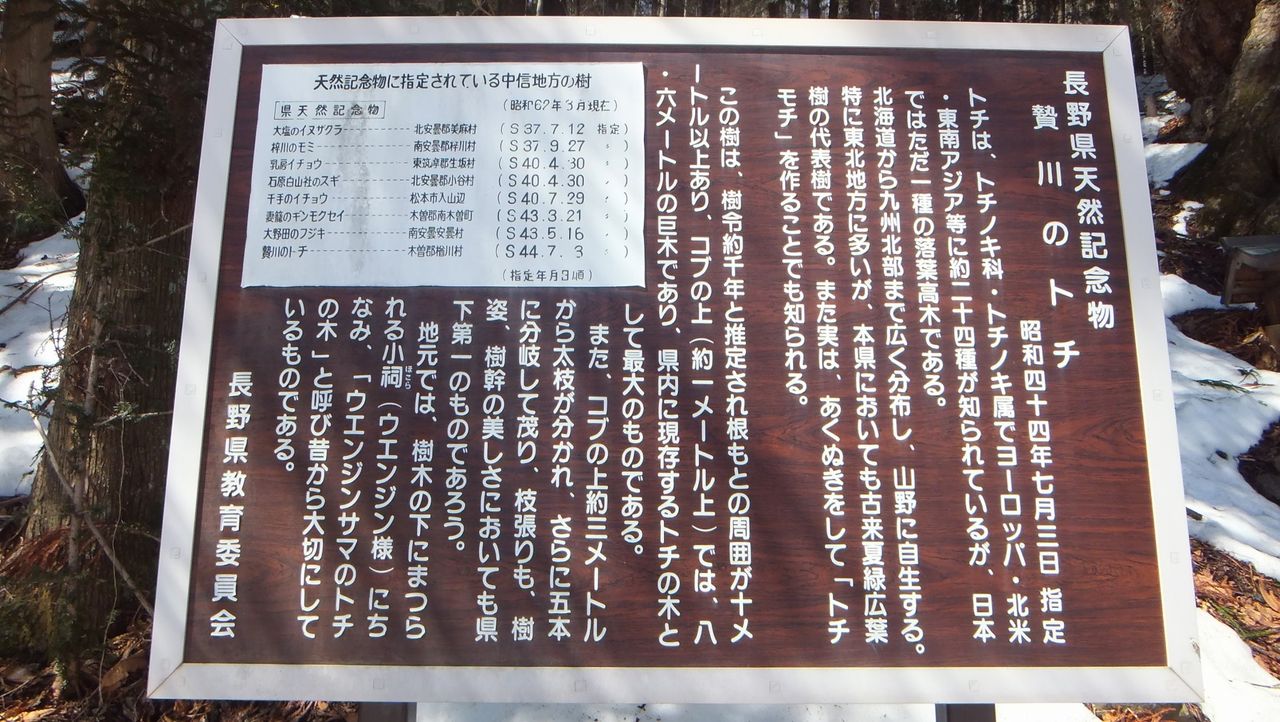 長野県天然記念物
贄川のトチ
昭和四十四年七月三日 指定
トチは、トチノキ科・トチノキ属でヨーロッパ・北米
・東南アジア等に約二十四種が知られているが、日本
ではただ一種の落葉高木である。
北海道から九州北部まで広く分布し、山野に自生する。
特に東北地方に多いが、本県においても古来夏緑広葉
樹の代表樹である。また実は、あくぬきをして「トチ
モチ」を作ることでも知られる。
この樹は、樹令約千年と推定され根もとの周囲が十メ
ートル以上あり、コブの上（約一メートル上）では、八
・六メートルの巨木であり、県内に現存するトチの木と
して最大のものである。
また、コブの上約三メートル
から太枝が分かれ、さらに五本
に分岐して茂り、枝張りも、樹
姿、樹幹の美しさにおいても県
下第一のものであろう。
地元では、樹木の下にまつら
れる小祠（ウエンジン様）にち
ほこら
なみ、「ウエンジンサマのトチ
の木」と呼び昔から大切にして
いるものである。
長野県教育委員会
天然記念物に指定されている中信地方の樹
県天然記念物 （昭和62年3月現在）
大塩のイヌザクラ 北安曇郡美麻村 （S37.7.12 指定）
梓川のモミ 南安曇郡梓川村 （S37.9.27 〃）
乳房イチョウ 東筑摩郡生坂村 （S40.4.30 〃）
石原白山社のスギ 北安曇郡小谷村 （S40.4.30 〃）
千手のイチョウ 松本市入山辺 （S40.7.29 〃）
妻籠のギンモクセイ 木曽郡南木曽町 （S43.3.21 〃）
大野田のフジキ 南安曇安曇村 （S43.5.16 〃）
贄川のトチ 木曽郡楢川村 （S44.7.3 〃）
（指定年月日順）